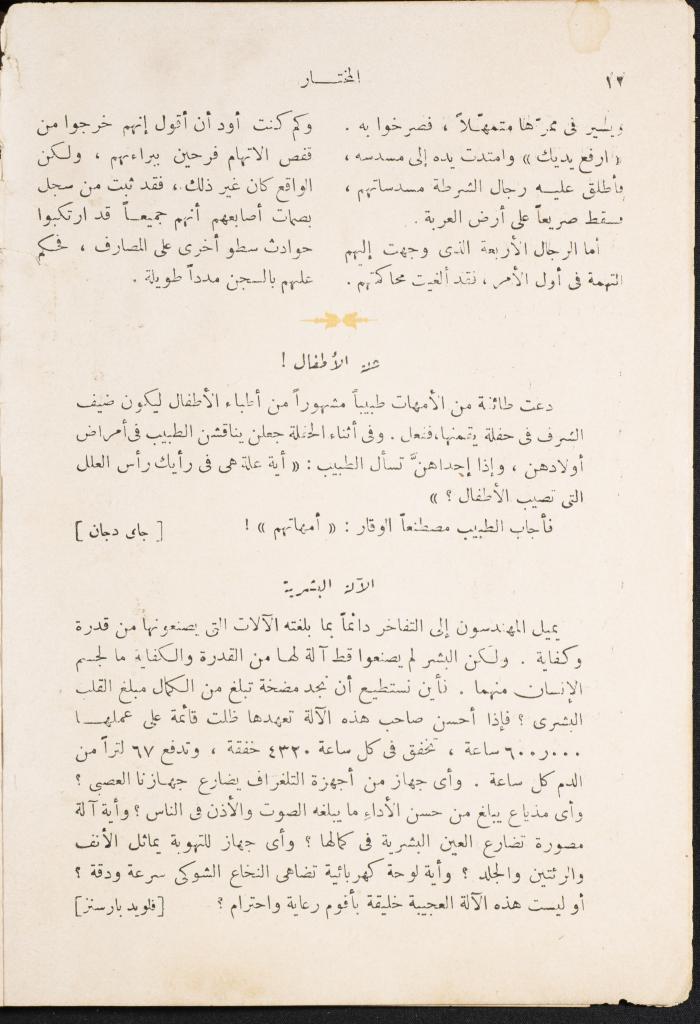 ١٢
المختــار
ويسير فى ممرّها متمهّلاً ، فصرخوا به .
« ارفع يديك » وامتدت يده إلى مسدسه ،
فأطلق عليه رجال الشرطة مسدساتهم ،
فسقط صريعاً على أرض العربة .
أما الرجال الأربعة الذى وجهت إليهم
التهمة فى أول الأمر ، فقد ألغيت محاكمتهم .
وكم كنت أود أن أقول إنهم خرجوا من
قفص الاتهام فرحين ببراءتهم ، ولكن
الواقع كان غير ذلك ، فقد ثبت من سجل
بصمات أصابعهم أنهم جميعاً قد ارتكبوا
حوادث سطو أخرى على المصارف ، فحكم
عليهم بالسجن مدداً طويلة .
الأطفال !
دعت طائفة من الأمهات طبيباً مشهوراً من أطباء الأطفال ليكون ضيف
الشرف فى حفلة يقمنها،ففعل . وفى أثناء الحفلة جعلن يناقشن الطبيب فى أمراض
أولادهن ، وإذا إحداهنَّ تسأل الطبيب : « أية علة هى فى رأيك رأس العلل
التى تصيب الأطفال ؟ »
فأجاب الطبيب مصطنعاً الوقار : « أمهاتهم » !
[ جاى دجان ]
الآلة البشرية
يميل المهندسون إلى التفاخر دائماً بما بلغته الآلات التى يصنعونها من قدرة
وكفاية . ولكن البشر لم يصنعوا قط آلة لها من القدرة والكفاية ما لجسم
الإنسان منهما . فأين نستطيع أن نجد مضخة تبلغ من الكمال مبلغ القلب
البشرى ؟ فإذا أحسن صاحب هذه الآلة تعهدها ظلت قائمة على عملهـا
٦٠٠٫٠٠٠ ساعة ، تخفق فى كل ساعة ٤٣٢٠ خفقة ، وتدفع ٦٧ لتراً من
الدم كل ساعة . وأى جهاز من أجهزة التلغراف يضارع جهازنا العصبى ؟
وأى مذياع يبلغ من حسن الأداء ما يبلغه الصوت والأذن فى الناس ؟ وأية آلة
مصورة تضارع العين البشرية فى كمالها ؟ وأى جهاز للتهوية يماثل الأنف
والرئتين والجلد ؟ وأية لوحة كهربائية تضاهى النخاع الشوكى سرعة ودقة ؟
أو ليست هذه الآلة العجيبة خليقة بأقوم رعاية واحترام ؟
[فلويد بارسنز]